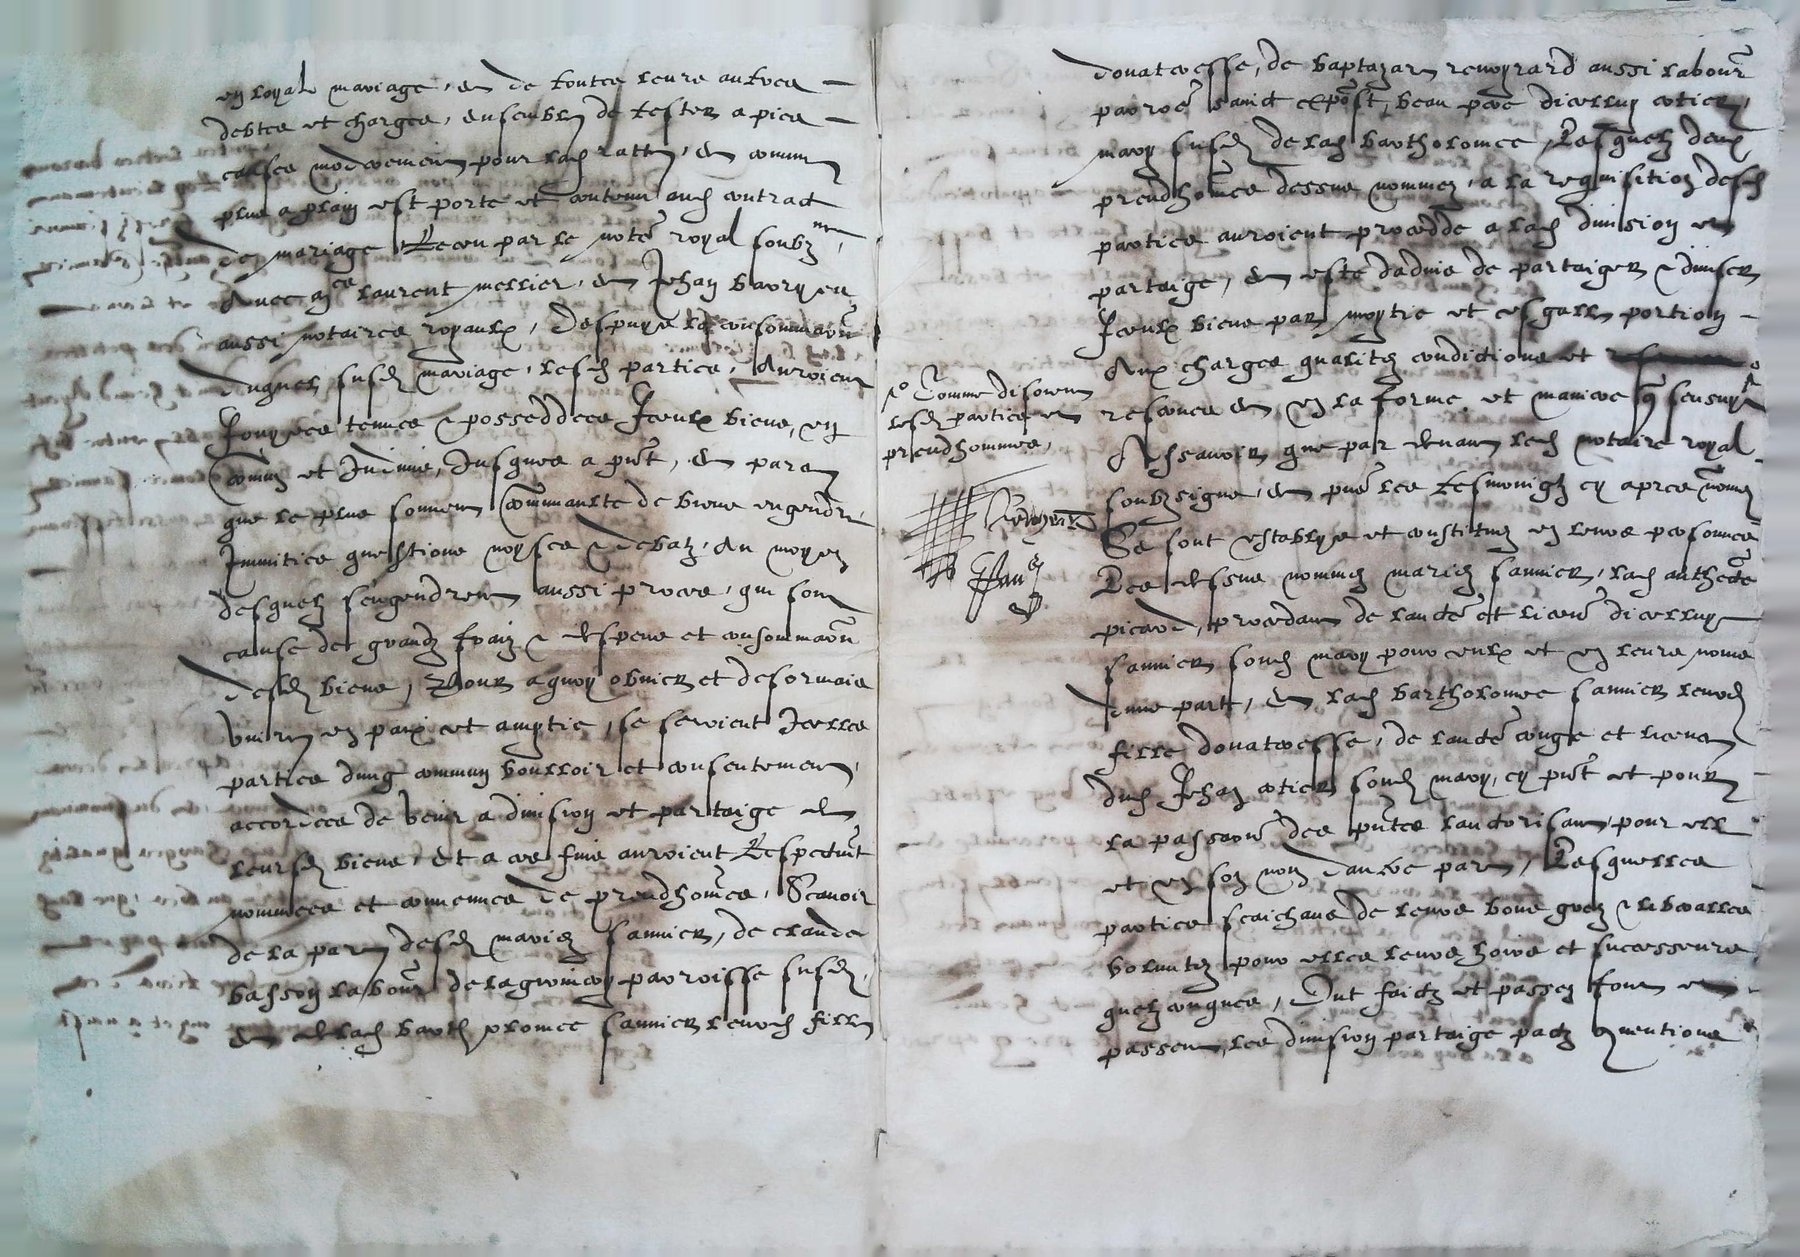 en loyal mariage, et de toutes leurs aultres
debtes et charges, ensemble de tester a pies
causes modereement pour lad ratte, et comme
plus a plain est porte et contenu aud contract
de mariage Receu par le note royal soubz ne
avec me laurent mellier, et Jehan
aussi notaires royaulx, Despuys la consommaon
duquel susd mariage, lesd parties, auroient
Jouyes tenues & posseddees Iceulx biens, en
Comun et Indivis, Jusques a pnt, et par
que le plus souvent Communaulte de biens engendre
Inimities questions noyses & debatz, au moyen
desquelz sengendrent aussi proces, qui sont
cause de grandz fraiz & despens et consommaon
desd biens, Pour a quoy obvier et desormais
vivre en paix et amytie, se seroient Icelles
parties dung commun voulloir et consentement
accordees de venir a division et partaige de
leursd biens, et a ces fins auroient Respectivt
nommees et convenues de preudhomes, Scavoir
de la part desd mariez sannier, de claude
basson labour de parroisse susd,
et de lad bartholomee sannier leurd fille
donateresse, de baptazar renoyrard aussi labour
parroe sainct beau pere dicelluy cotier,
mary susd de lad bartholomee, Lesquelz deux
preudhomes dessus nommez, a la requisition desd
parties auroient procedde a lad division et
partaige, et este dadvis de partaiger & diviser
Iceulx biens par moytie et esgalle portion
Aux charges qualitez condictions et
reserves et en la forme et maniere q sensuyt
Assavoir que par devant led notaire royal
soubzsigne, et pns les tesmoingz cy apres nomez
Se sont establys et constituez en leurs personnes
Les dessus nommez mariez sannier, lad anthe
picard, procedant de laucte et licence dicelluy
sannier sond mary pour eulx et en leurs noms
dune part, et lad bartholomee sannier leurd
fille donateresse, de laucte conge et licence
dud Jehan cotier sond mary, cy pnt et pour
la passaon des pntes lauctorisant pour elle
et en son nom daultre part, Lesquelles
parties scaichans de leurs bons grez & liberalles
voluntez pour elles leurs hoirs et successeurs
quelzconques, Ont faictz et passez font et
passent, les division partaige pactz conventions
Comme disoient
lesd parties et
preudhommes,